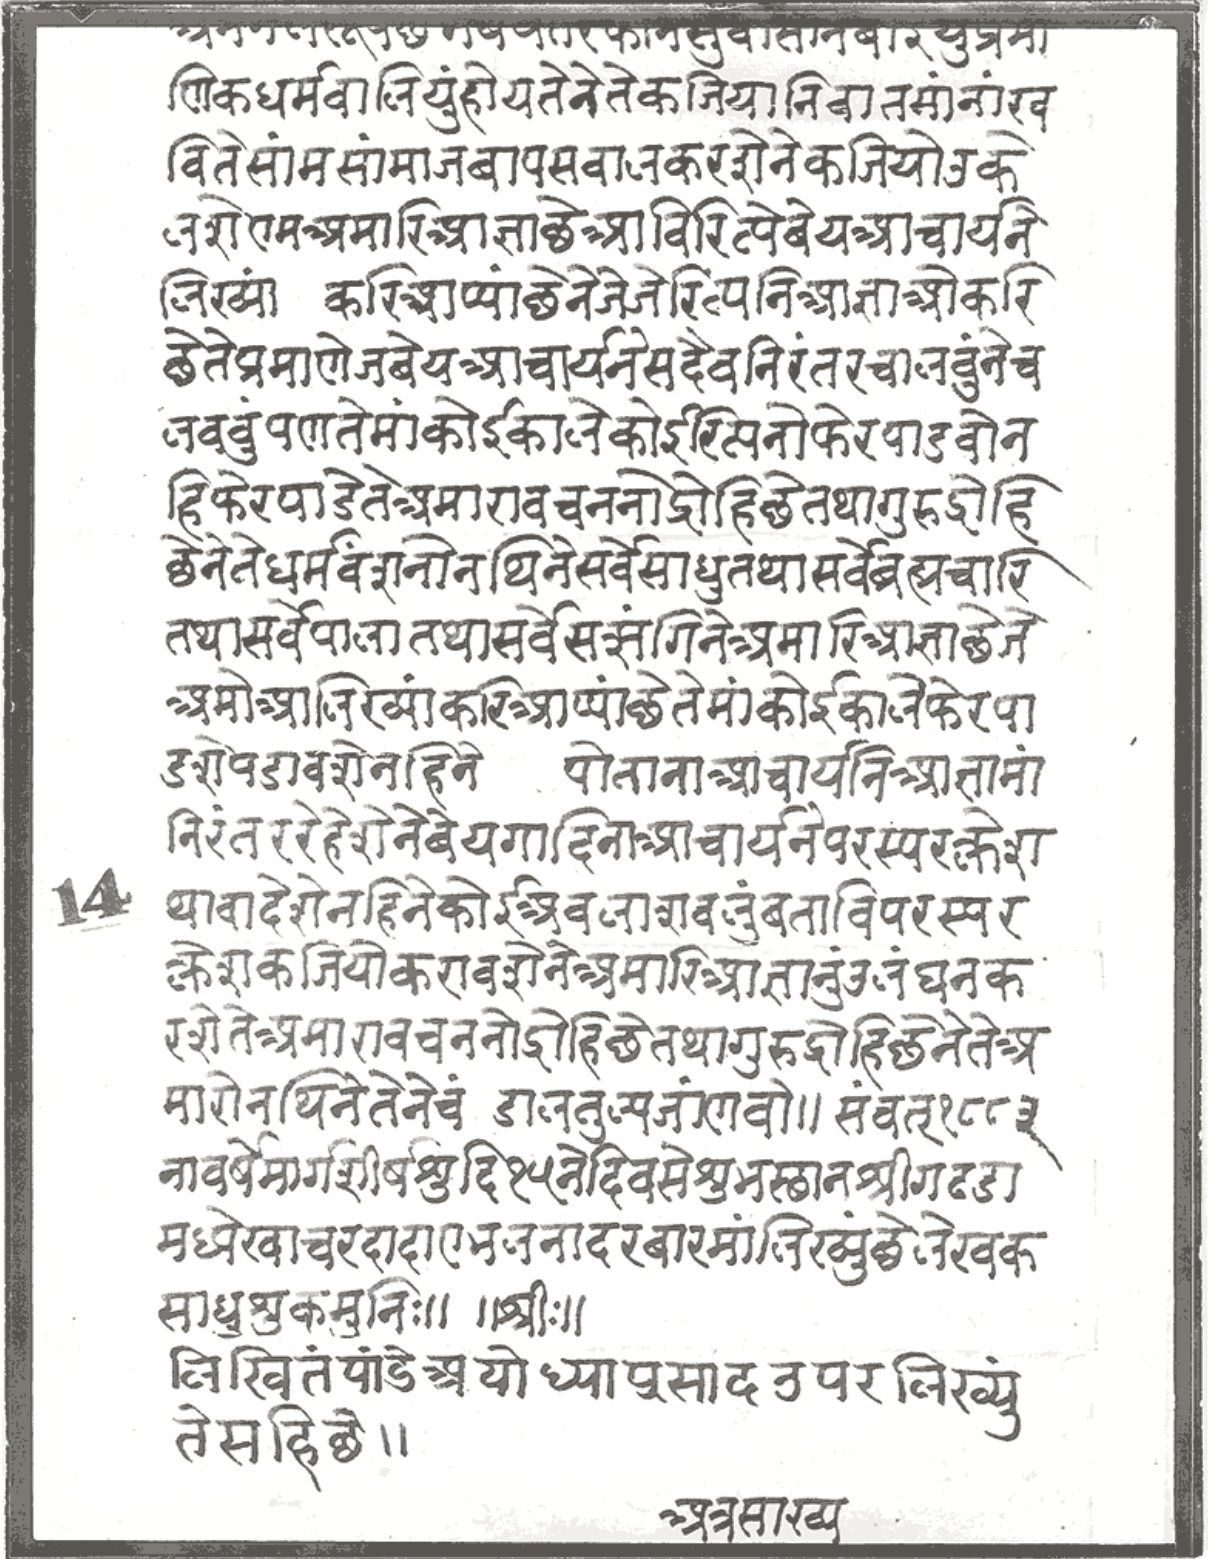 णिकधर्मवालियुंहोयतेनेतेकजियानिवातमांनांरव
वितेसांमसांमाजबापसवालकरशेनेकजियोउके
लशेएमअमारिआज्ञाछेआविरित्येबेयआचार्यने
लिख्यां करिआप्यांछेनेजेजेरित्यनिआज्ञाओकरि
छेतेप्रमाणेजबेयआचार्यनेसदैवनिरंतरचालवुंनेच
लववुंपणतेमांकोईकालेकोईरित्यनोफेरपाडवोन
हिफेरपाडेतेअमारावचननोद्रोहिछेतथागुरुद्रोहि
छेनेतेधर्मवंशनोनथिनेसर्वेसाधुतथासर्वेब्रह्मचारि
तथासर्वेपालातथासर्वेसत्संगिनेअमारिआज्ञाछेजे
अमोआलिख्यांकरिआप्यांछेतेमांकोईकालेफेरपा
डशेपडावशेनहिने पोतानाआचार्यनिआज्ञामां
निरंतररेहेशेनेबेयगादिनाआचार्यनेपरस्परक्लेश
थावादेशेनहिनेकोईअवलाशवलुंबताविपरस्पर
क्लेशकजियोकरावशेनेअमारिआज्ञानुंउलंघनक
रशेतेअमारावचननोद्रोहिछेतथागुरुद्रोहिछेनेतेअ
मारोनथिनेतेनेवं डालतुल्यजांणवो॥ संवत्१८८३
नावर्षेमार्गशीर्षशुदि१५नेदिवसेशुभस्थानश्रीगढडा
मध्येखाचरदादाएभलनादरबारमांलिख्युंछेलेखक
साधुशुकमुनिः॥ ॥श्रीः॥
14
लिखितंपांडेअयोध्याप्रसादउपरलिख्युं
तेसहिछे॥
अत्रसाख्य